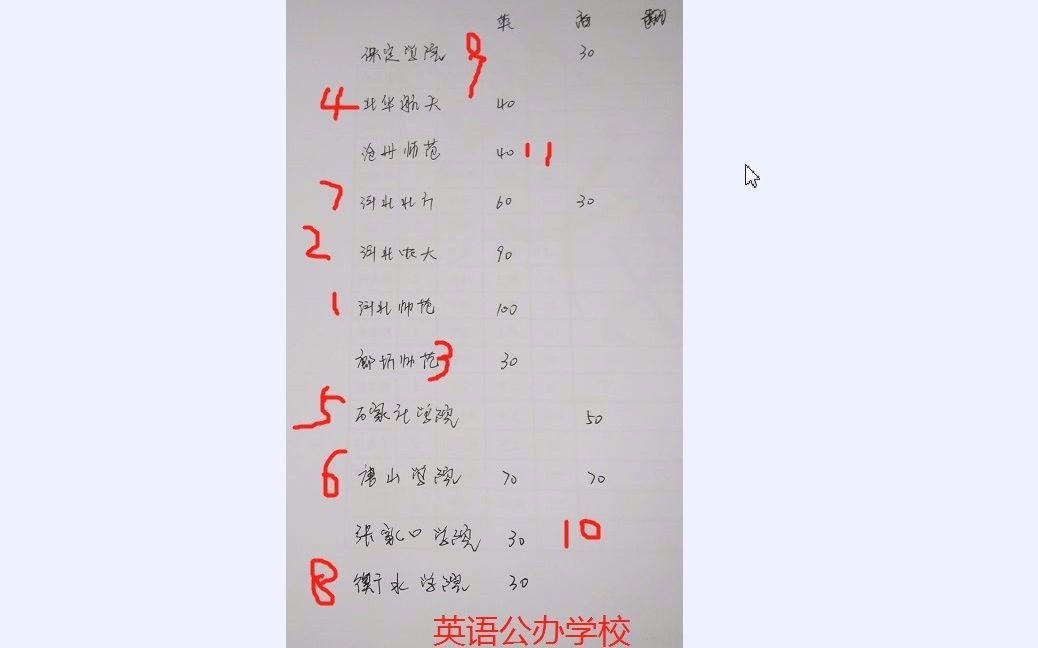 英 商 翻
保定学院 9 30
4 北华航天 40
沧州师范 40 11
7 河北北方 60 30
2 河北农大 90
1 河北师范 100
廊坊师范 3 30
5 石家庄学院 50
6 唐山学院 70 70
张家口学院 30 10
8 衡水学院 30
英语公办学校